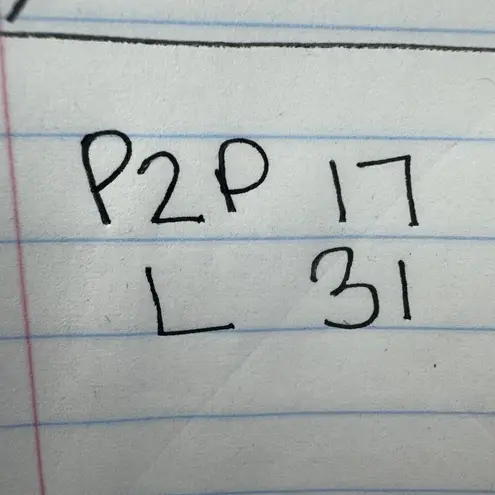 P2P 17
L 31